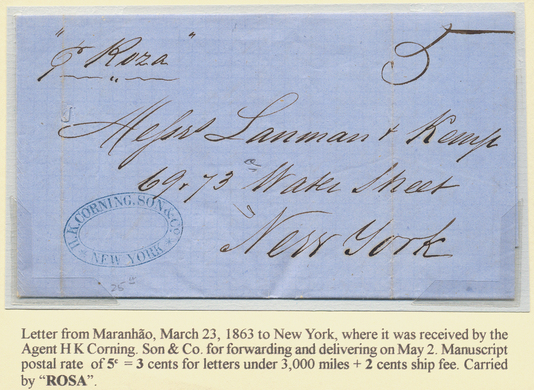 "p Roza"
5
Messrs Lanman & Kemp
69 & 73 Water Street
New York
H.K.CORNING, SON & CO.
NEW YORK
25 c
Letter from Maranhão, March 23, 1863 to New York, where it was received by the
Agent H K Corning. Son & Co. for forwarding and delivering on May 2. Manuscript
postal rate of 5c = 3 cents for letters under 3,000 miles + 2 cents ship fee. Carried
by "ROSA".